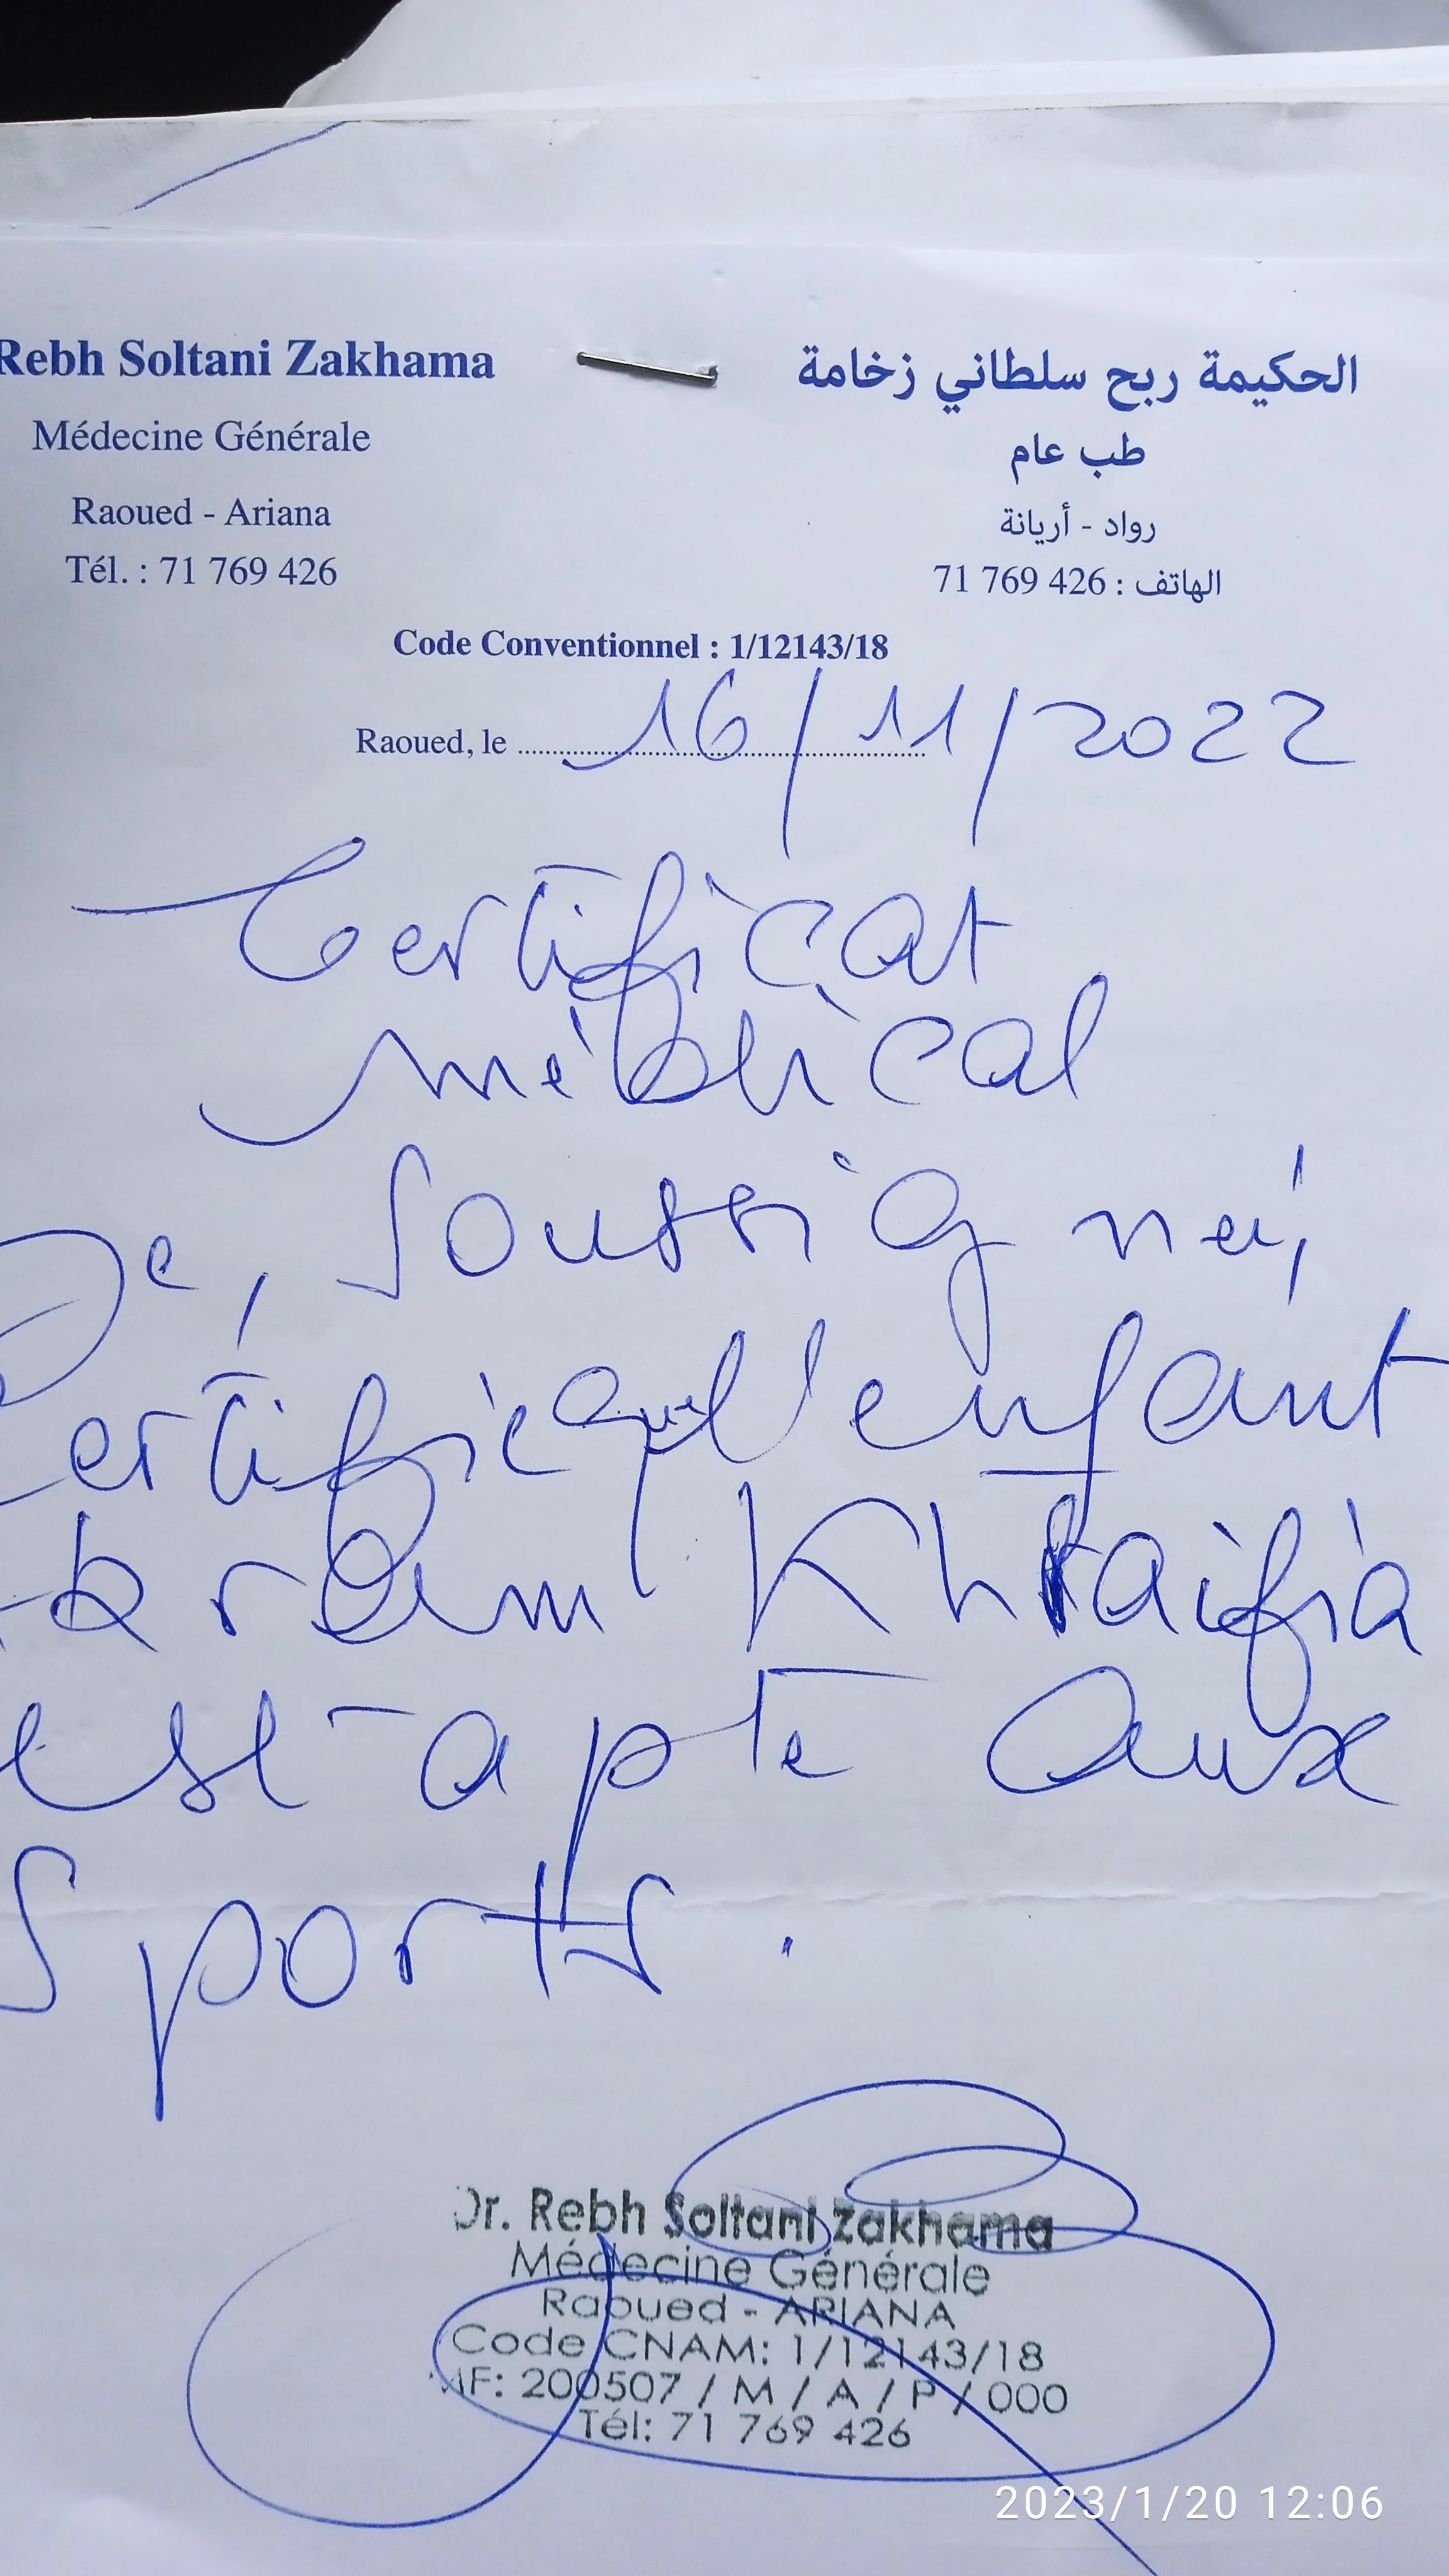 Rebh Soltani Zakhama
Médecine Générale
Raoued - Ariana
Tél. : 71 769 426
الحكيمة ربح سلطاني زخامة
طب عام
رواد - أريانة
الهاتف : 426 769 71
Code Conventionnel : 1/12143/18
Raoued, le 16/11/2022
Certificat
médical
Je, soussigné,
certifie que l'enfant
Khraifia
est apte aux
sports.
Dr. Rebh Soltani Zakhama
Médecine Générale
Raoued - ARIANA
Code CNAM: 1/12143/18
MF: 200507 / M / A / P / 000
Tél: 71 769 426
2023/1/20 12:06